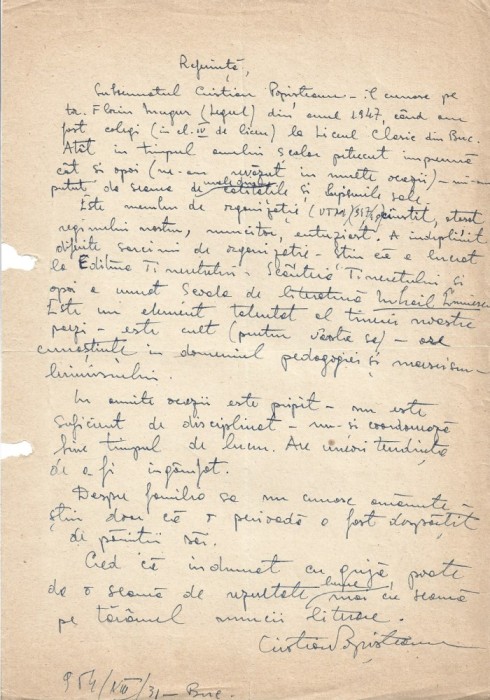 Referință,
Subsemnatul Cristian Popișteanu – îl cunosc pe
tov. Florin Mugur (Legrel) din anul 1947, când am
fost colegi (în cl. IV de liceu) la Liceul Clasic din Buc.
Atât în timpul anului școlar petrecut împreună
cât și apoi (ne-am revăzut în multe ocazii) – mi-am
putut da seama de calitățile și lipsurile sale.
Este membru de organizație (UTM) cinstit, atașat
regimului nostru, muncitor, entuziast. A îndeplinit
diferite sarcini de organizație. Știu că a lucrat
la Editura Tineretului – Scânteia Tineretului și
apoi a urmat Școala de literatură Mihail Eminescu
Este un element talentat al tinerei noastre
poezii – este cult (pentru vârsta sa) – are
cunoștințe în domeniul pedagogiei și marxism-
leninismului.
În anumite ocazii este pripit – nu este
suficient de disciplinat – nu-și coordonează
bine timpul de lucru. Are uneori tendința
de a fi îngâmfat.
Despre familia sa nu cunosc amănunte –
știu doar că o perioadă a fost despărțit
de părinții săi.
Cred că îndrumat cu grijă, poate
da o seamă de rezultate bune mai cu seamă
pe tărâmul muncii literare.
Cristian Popișteanu
954/VIII/31 – Buc.